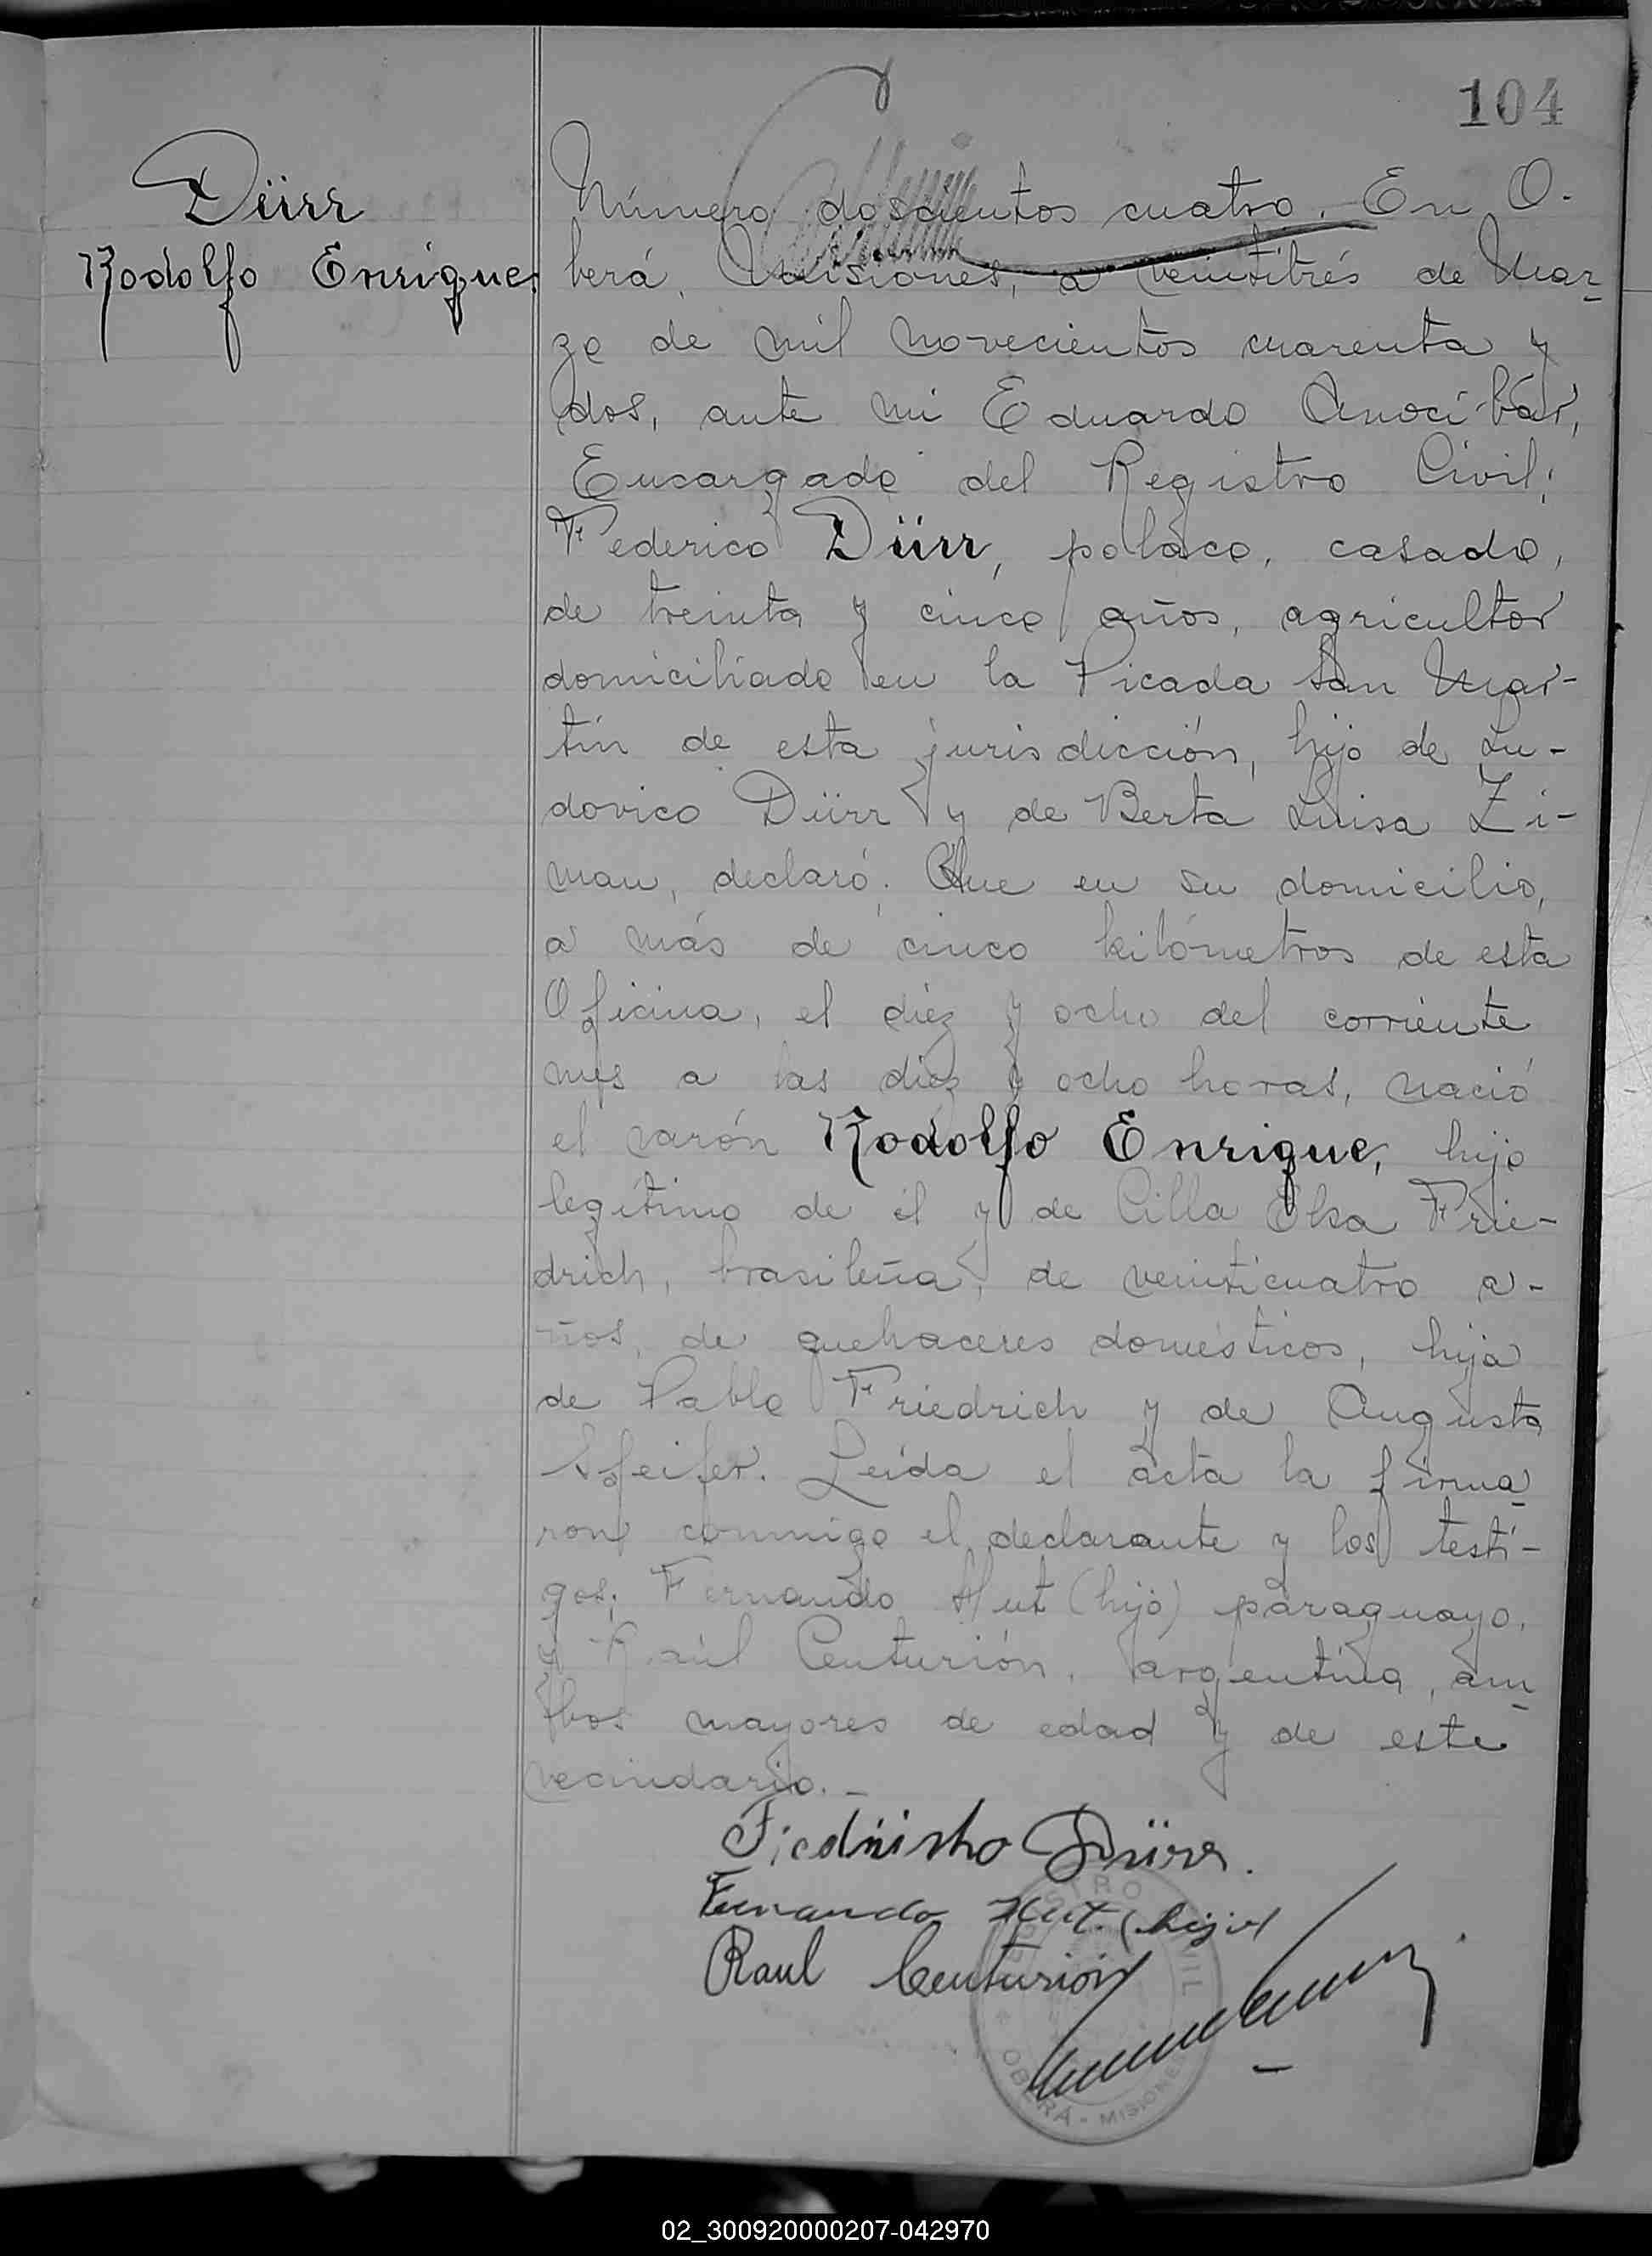 104
Dürr
Rodolfo Enrique.
Número doscientos cuatro. En O-
berá, Misiones, a veintitrés de Mar-
zo de mil novecientos cuarenta y
dos, ante mi Eduardo Anocíbar,
Encargado del Registro Civil;
Federico Dürr, polaco, casado,
de treinta y cinco años, agricultor
domiciliado en la Picada San Mar-
tín de esta jurisdicción, hijo de Lu-
dovico Dürr y de Berta Luisa Zi-
man, declaró: Que en su domicilio,
a más de cinco kilómetros de esta
Oficina, el diez y ocho del corriente
mes a las diez y ocho horas, nació
el varón Rodolfo Enrique, hijo
legítimo de él y de Cilla Elsa Frie-
drich, brasileña, de veinticuatro a-
ños, de quehaceres domésticos, hija
de Pablo Friedrich y de Augusta
Sfeifer. Leída el acta la firma-
ron conmigo el declarante y los testi-
gos; Fernando Hut (hijo) paraguayo,
y Raúl Centurión, argentino, am-
bos mayores de edad y de este
vecindario.-
Dürr.
Fernando Hut. (hijo)
Raul Centurión
REGISTRO CIVIL
OBERÁ - MISIONES
02_300920000207-042970